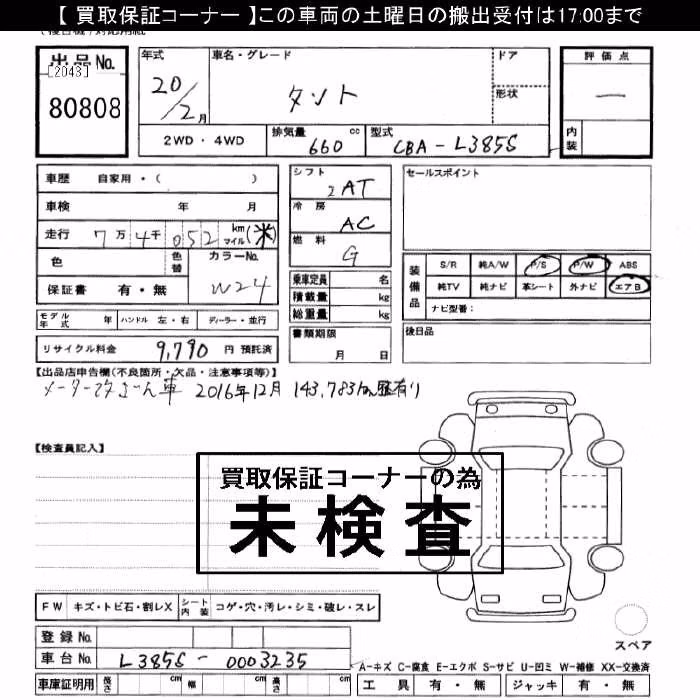 【 買取保証コーナー 】この車両の土曜日の搬出受付は17:00まで
出品No.
[2043]
80808
年式
20/2月
車名・グレード
タント
ドア
形状
評価点
一
内装
2WD・4WD
排気量 660 cc
型式 CBA-L385S
車歴 自家用・( )
車検 年 月
走行 7万4千052 km マイル(米)
色
色替
カラーNo. W24
保証書 有・無
シフト 2AT
冷房 AC
燃料 G
乗車定員 名
積載量 kg
総重量 kg
セールスポイント
装備品
S/R 純A/W P/S P/W ABS
純TV 純ナビ 革シート 外ナビ エアB
ナビ型番:
モデル年式 年 ハンドル 左・右 ディーラー・並行
書類期限
月 日
後日品
リサイクル料金 9,790 円 預託済
【出品店申告欄(不良箇所・欠品・注意事項等)】
メーター改ざん車 2016年12月 143,783km歴有り
【検査員記入】
買取保証コーナーの為
未検査
FW キズ・トビ石・割レX シート内装 コゲ・穴・汚レ・シミ・破レ・スレ
スペア
登録No.
車台No. L385S-0003235
A-キズ C-腐食 E-エクボ S-サビ U-凹ミ W-補修 XX-交換済
車庫証明用 長さ cm 幅 cm 高さ cm
工具 有・無 ジャッキ 有・無